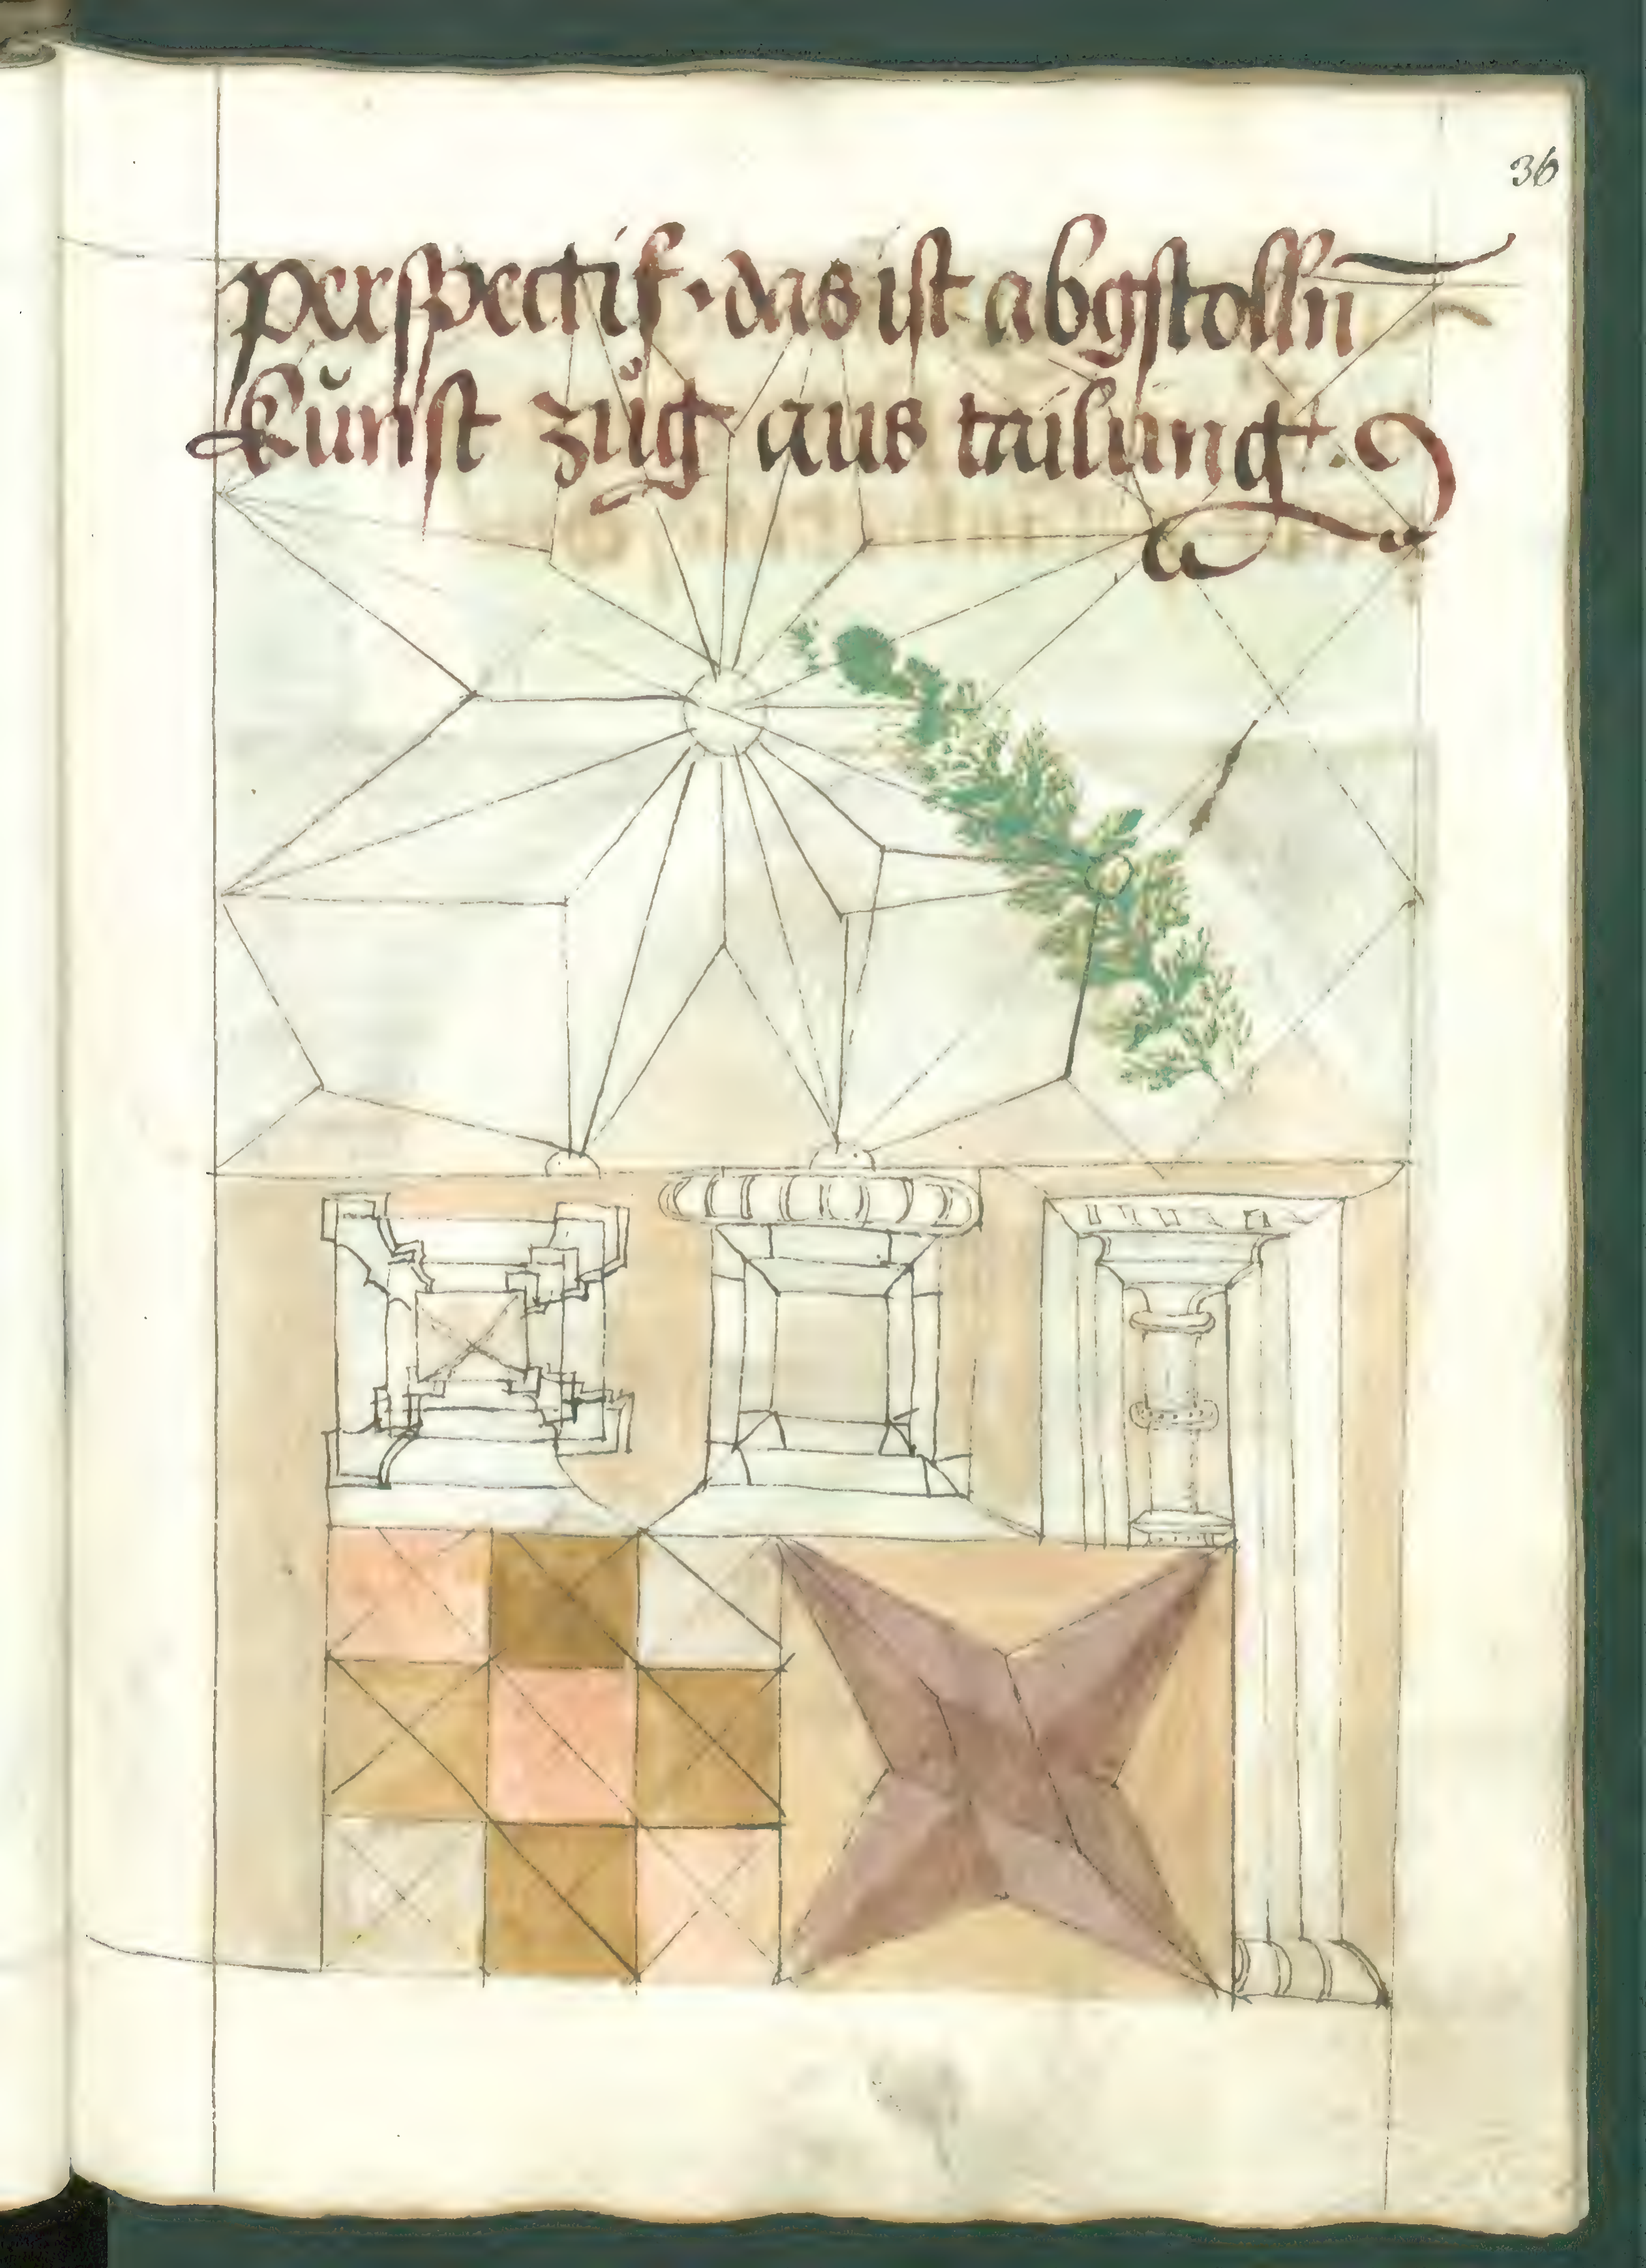 36
perspectif · das ist abgstolln
kunst züg aus tailung ·